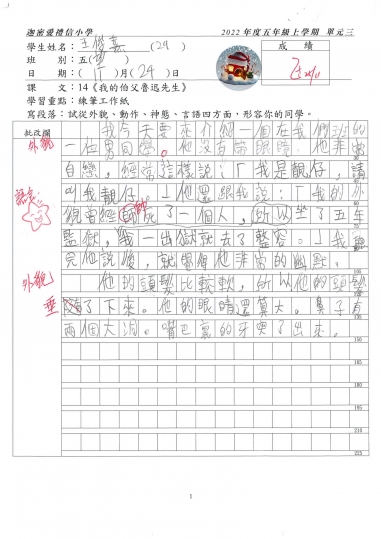 迦密愛禮信小學
2022年度五年級上學期 單元三
學生姓名：王俊嘉（24）
成績
班別：五（ ）
日期：（11）月（24）日
課文：14《我的伯父魯迅先生》
學習重點：練筆工作紙
寫段落：試從外貌、動作、神態、言語四方面，形容你的同學。
批改欄
我今天要來介紹一個在我們班的
外貌
一位男同學。他沒有帶眼睛。他非常
自戀，經常這樣說：「我是靚仔，請
語言
叫我靚仔。」他還跟我說：「我的外
貌曾經帥死了一個人，所以坐了五年
監獄，我一出獄就去了整容。」我聽
完他說後，就覺得他非常的幽默。
外貌
他的頭髮比較軟，所以他的頭髮
垂
隨了下來。他的眼睛還算大。鼻子有
兩個大洞。嘴巴裏的牙突了出來。
15
30
45
60
75
90
105
120
135
150
165
180
195
210
225
1